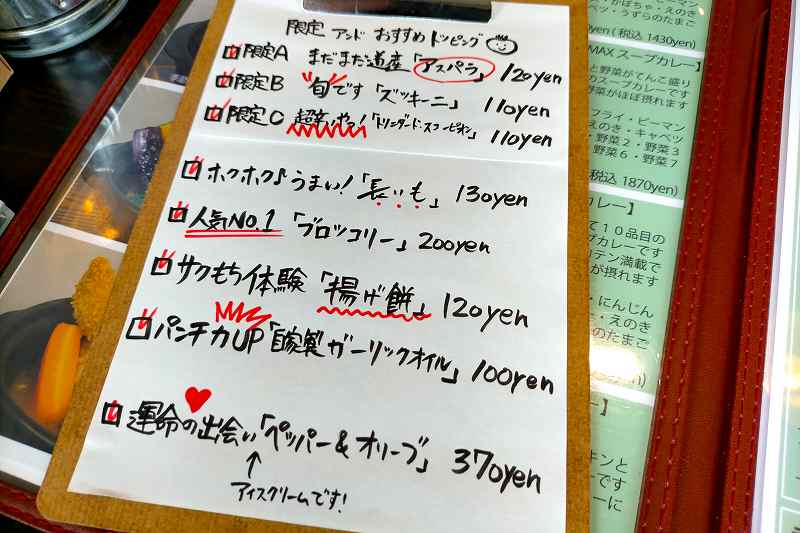 限定 アンド おすすめ トッピング
限定A まだまだ道産「アスパラ」 120yen
限定B 旬です「ズッキーニ」 110yen
限定C 超辛いやつ!「トリニダード・スコーピオン」 110yen
ホクホク♪うまい!「長いも」 130yen
人気NO.1「ブロッコリー」 200yen
サクもち体験「揚げ餅」 120yen
パンチ力UP「自家製ガーリックオイル」 100yen
運命の出会い「ペッパー&オリーブ」 370yen
↑
アイスクリームです!
・かぼちゃ・えのき
・うずらのたまご
yen(税込 1430yen)
MAX スープカレー】
と野菜がてんこ盛り
のスープカレーです
野菜がほぼ摂れます
フライ・ピーマン
えのき・キャベツ
・野菜2・野菜3
野菜6・野菜7
(税込 1870yen)
カレー】
て10品目の
プカレーです
リテン満載で
が摂れます
・にんじん
・えのき
のたまご
yen)
ー】
キンと
カレーです
ーに